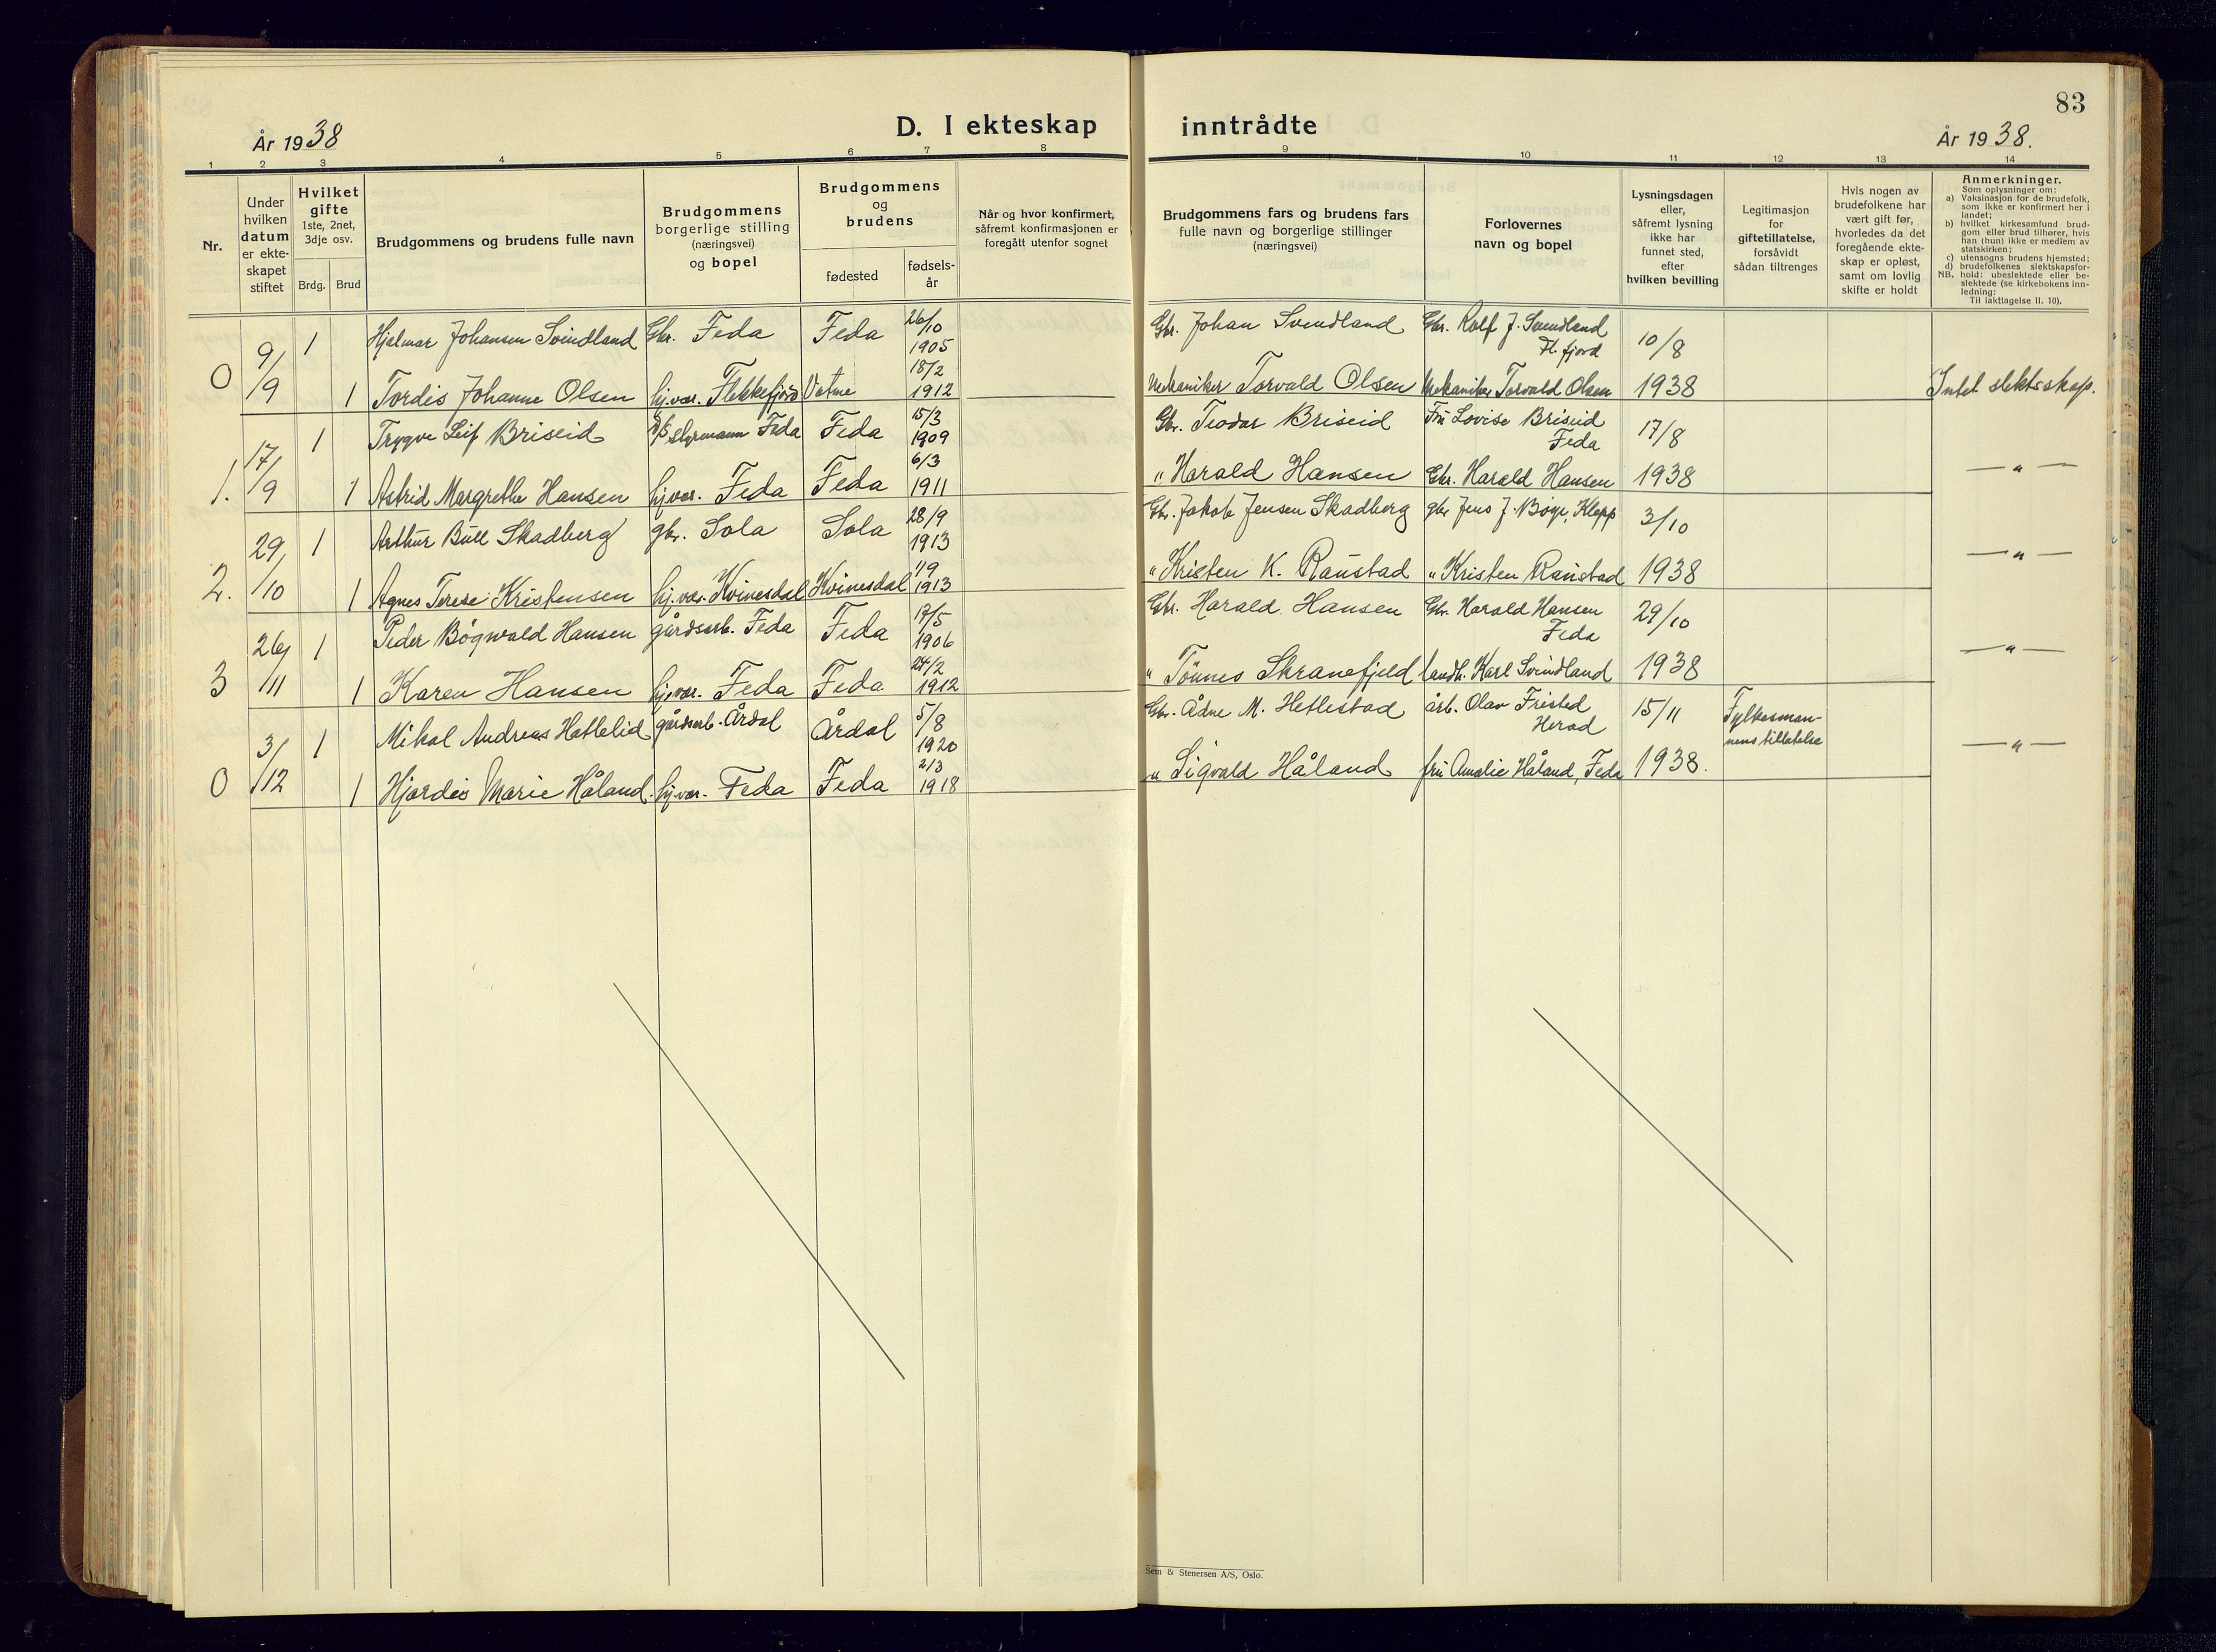 83
År 1938
D. I ekteskap inntrådte
År 1938.
1 2 3 4 5 6 7 8 9 10 11 12 13 14
Nr.
Under
hvilken
datum
er ekte-
skapet
stiftet
Hvilket
gifte
1ste, 2net,
3dje osv.
Brdg. Brud
Brudgommens og brudens fulle navn
Brudgommens
borgerlige stilling
(næringsvei)
og bopel
Brudgommens
og
brudens
fødested
fødsels-
år
Når og hvor konfirmert,
såfremt konfirmasjonen er
foregått utenfor sognet
Brudgommens fars og brudens fars
fulle navn og borgerlige stillinger
(næringsvei)
Forlovernes
navn og bopel
Lysningsdagen
eller,
såfremt lysning
ikke har
funnet sted,
efter
hvilken bevilling
Legitimasjon
for
giftetillatelse,
forsåvidt
sådan tiltrenges
Hvis nogen av
brudefolkene har
vært gift før,
hvorledes da det
foregående ekte-
skap er opløst,
samt om lovlig
skifte er holdt
Anmerkninger.
Som oplysninger om:
a) Vaksinasjon for de brudefolk,
som ikke er konfirmert her i
landet;
b) hvilket kirkesamfund brud-
gom eller brud tilhører, hvis
han (hun) ikke er medlem av
statskirken;
c) utensogns brudens hjemsted;
d) brudefolkenes slektskapsfor-
hold: ubeslektede eller be-
slektede (se kirkebokens inn-
ledning:
NB. Til iakttagelse II. 10).
0 9/9 1 Hjalmar Johansen Svindland Gbr. Feda Feda 26/10 1905 Gbr. Johan Svendland Gbr. Rolf J. Svendland Fl. fjord 10/8
1 Tordis Johanne Olsen hj.vær. Flekkefjord Vatne 18/2 1912 Mekaniker Torvald Olsen Mekaniker Torvald Olsen 1938 Intet slektsskap.
1. 17/9 1 Trygve Leif Briseid D/S styrmann Feda Feda 15/3 1909 Gbr. Teodor Briseid Fru Lovise Briseid Feda 17/8
1 Astrid Margrethe Hansen hj.vær. Feda Feda 6/3 1911 " Harald Hansen Gbr. Harald Hansen 1938 — " —
2. 29/10 1 Arthur Bull Skadberg gbr. Sola Sola 28/9 1913 Gbr. Jakob Jensen Skadberg gbr Jens J. Bøye, Klepp 3/10
1 Agnes Terese Kristensen hj.vær. Kvinesdal Kvinesdal 1/9 1913 " Kristen K. Raustad " Kristen Raustad 1938 — " —
3 26/11 1 Peder Bøgwald Hansen gårdsarb. Feda Feda 17/5 1906 Gbr. Harald Hansen Gbr. Harald Hansen Feda 29/10
1 Karen Hansen hj.vær. Feda Feda 24/2 1912 " Tønnes Skranefjeld landh. Karl Svindland 1938 — " —
0 3/12 1 Mikal Andreas Hatlelid gårdsarb. Årdal Årdal 5/8 1920 Gbr. Ådne M. Hetlestad arb. Olav Fristed Herad 15/11 Fylkesman-
nens tillatelse
1 Hjørdis Marie Håland. hj.vær. Feda Feda 2/3 1918 " Sigvald Håland fru Amalie Håland, Feda 1938. — " —
Sem & Stenersen A/S, Oslo.